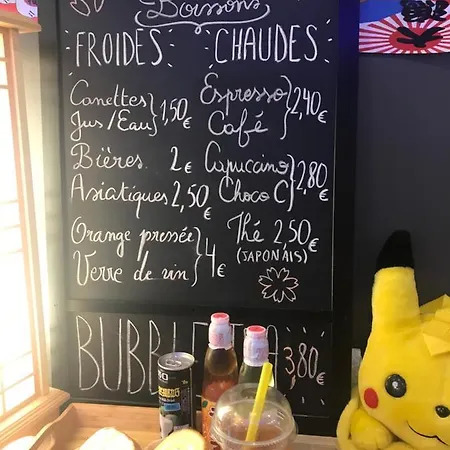 Boissons
FROIDES
CHAUDES
Canettes
Jus/Eau } 1,50 €
Bières 2 €
Asiatiques 2,50 €
Orange pressée
Verre de vin } 4 €
Espresso
Café } 2,40 €
Capuccino
Choco C } 2,80 €
Thé 2,50 €
(JAPONAIS)
BUBBLE TEA 3,80 €